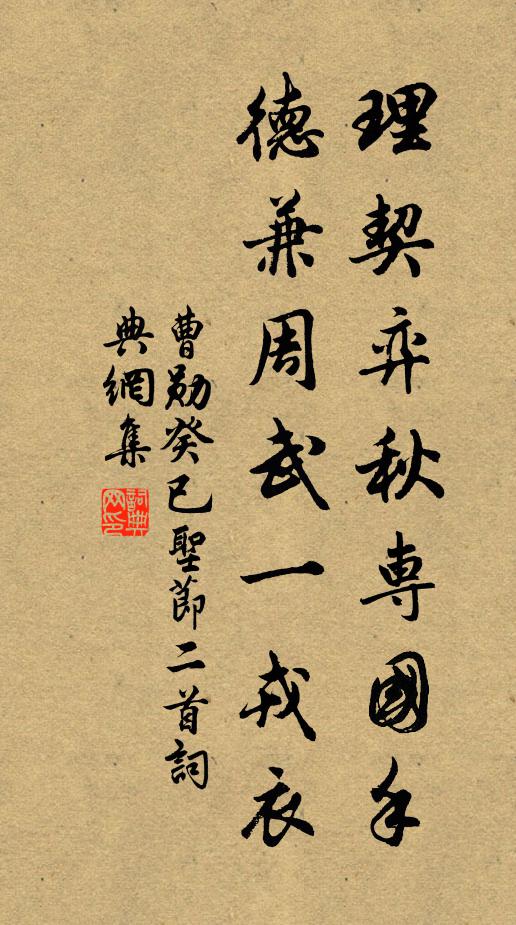 理契弈秋專國手
德兼周武一戎衣
曹勛癸巳聖節二首詞
典網集
詞典
网印